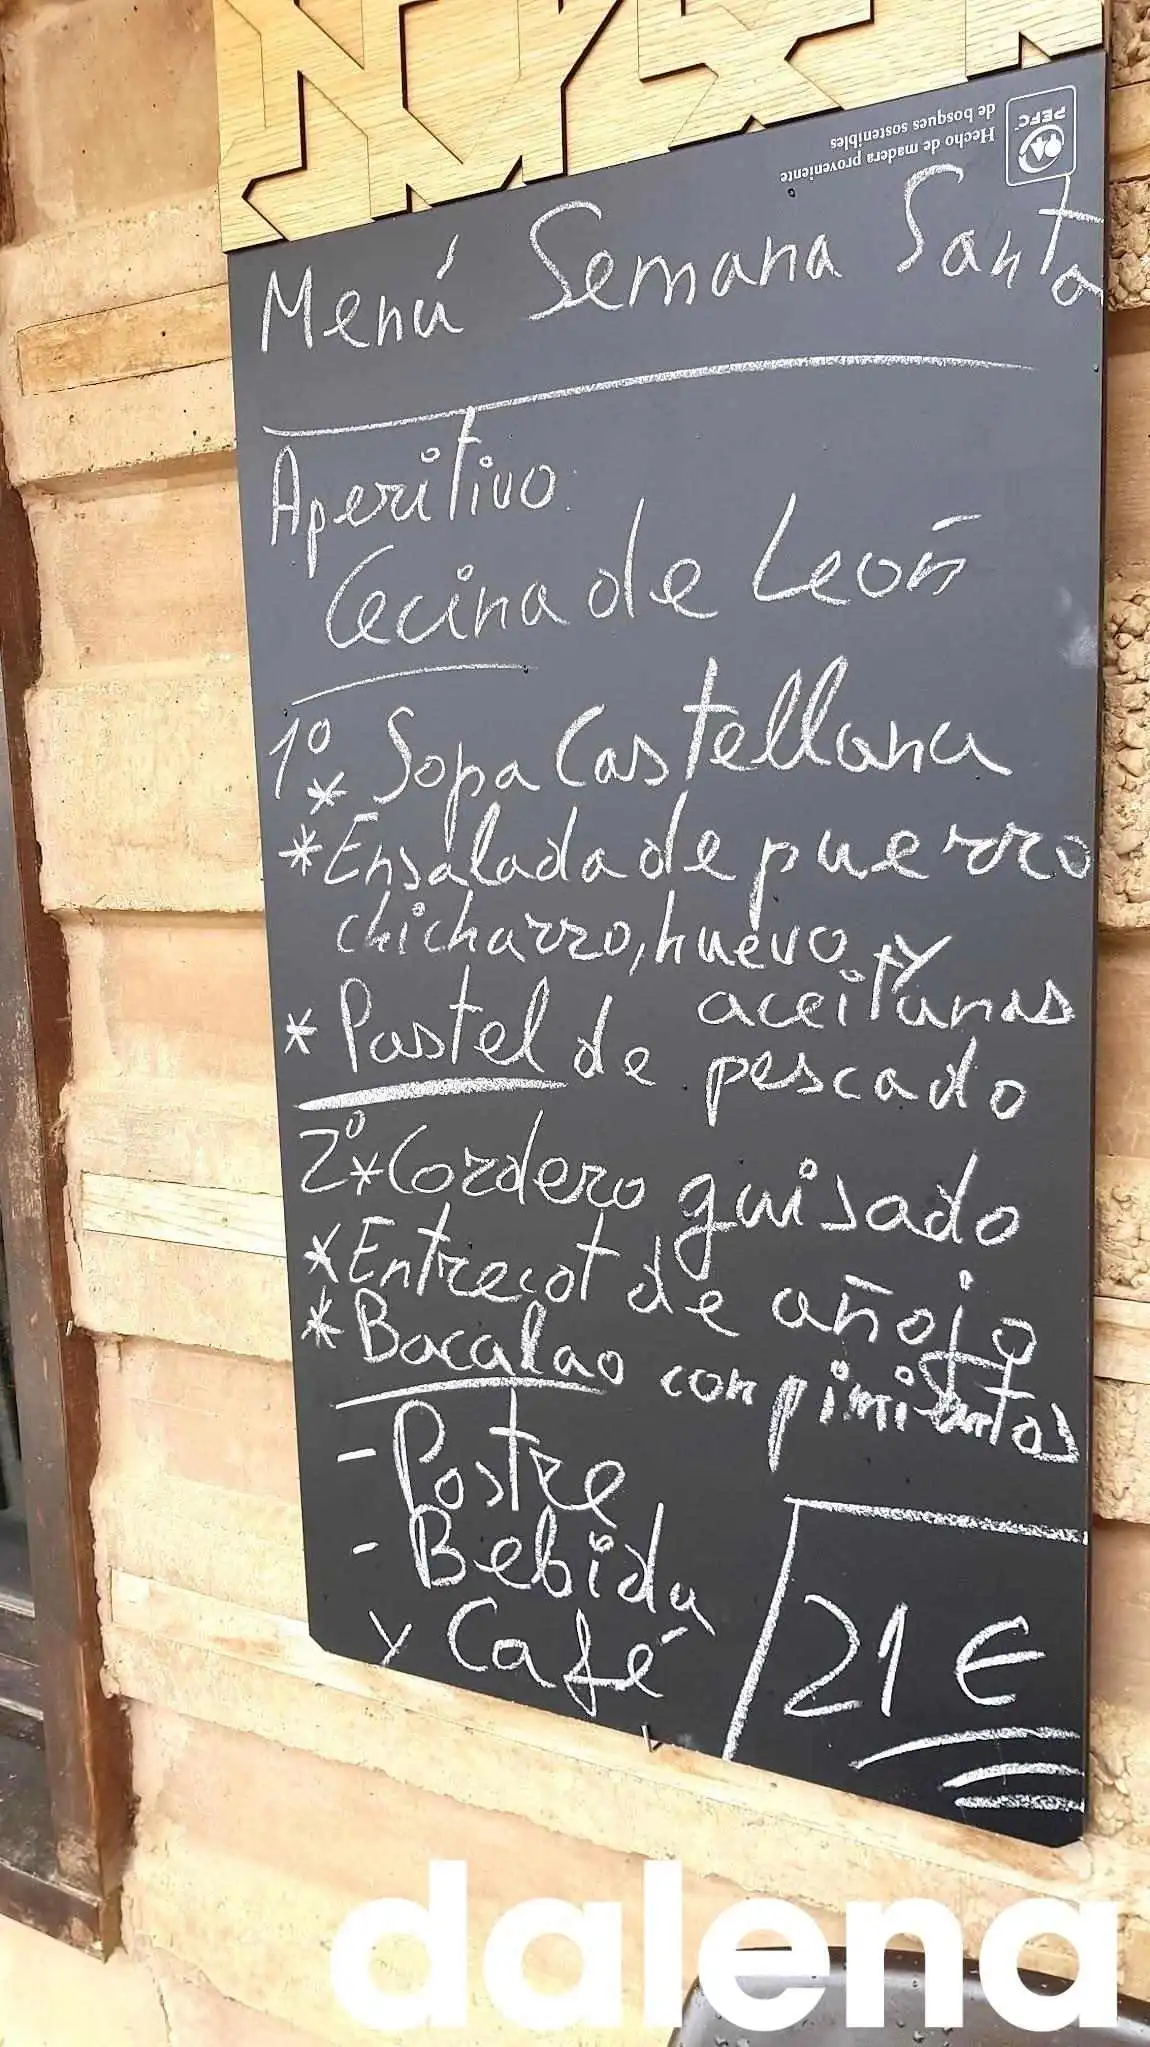 PEFC
Hecho de madera proveniente
de bosques sostenibles
Menú Semana Santa
Aperitivo:
Cecina de León
1º
* Sopa Castellana
* Ensalada de puerro
chicharro, huevo y
aceitunas
* Pastel de pescado
2º * Cordero guisado
* Entrecot de añojo
* Bacalao con pimientos
- Postre
- Bebida
y Café
21 €
dalena